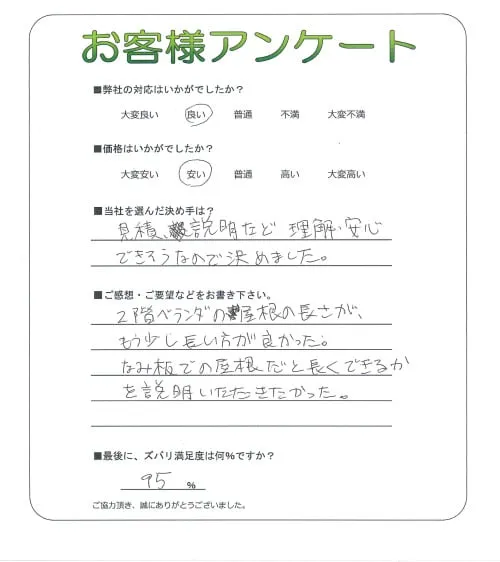 お客様アンケート
■弊社の対応はいかがでしたか？
大変良い 良い 普通 不満 大変不満
■価格はいかがでしたか？
大変安い 安い 普通 高い 大変高い
■当社を選んだ決め手は？
見積、説明など 理解・安心
できそうなので決めました。
■ご感想・ご要望などをお書き下さい。
2階ベランダの屋根の長さが、
もう少し長い方が良かった。
なみ板での屋根だと長くできるか
を説明いただきたかった。
■最後に、ズバリ満足度は何%ですか？
95 %
ご協力頂き、誠にありがとうございました。